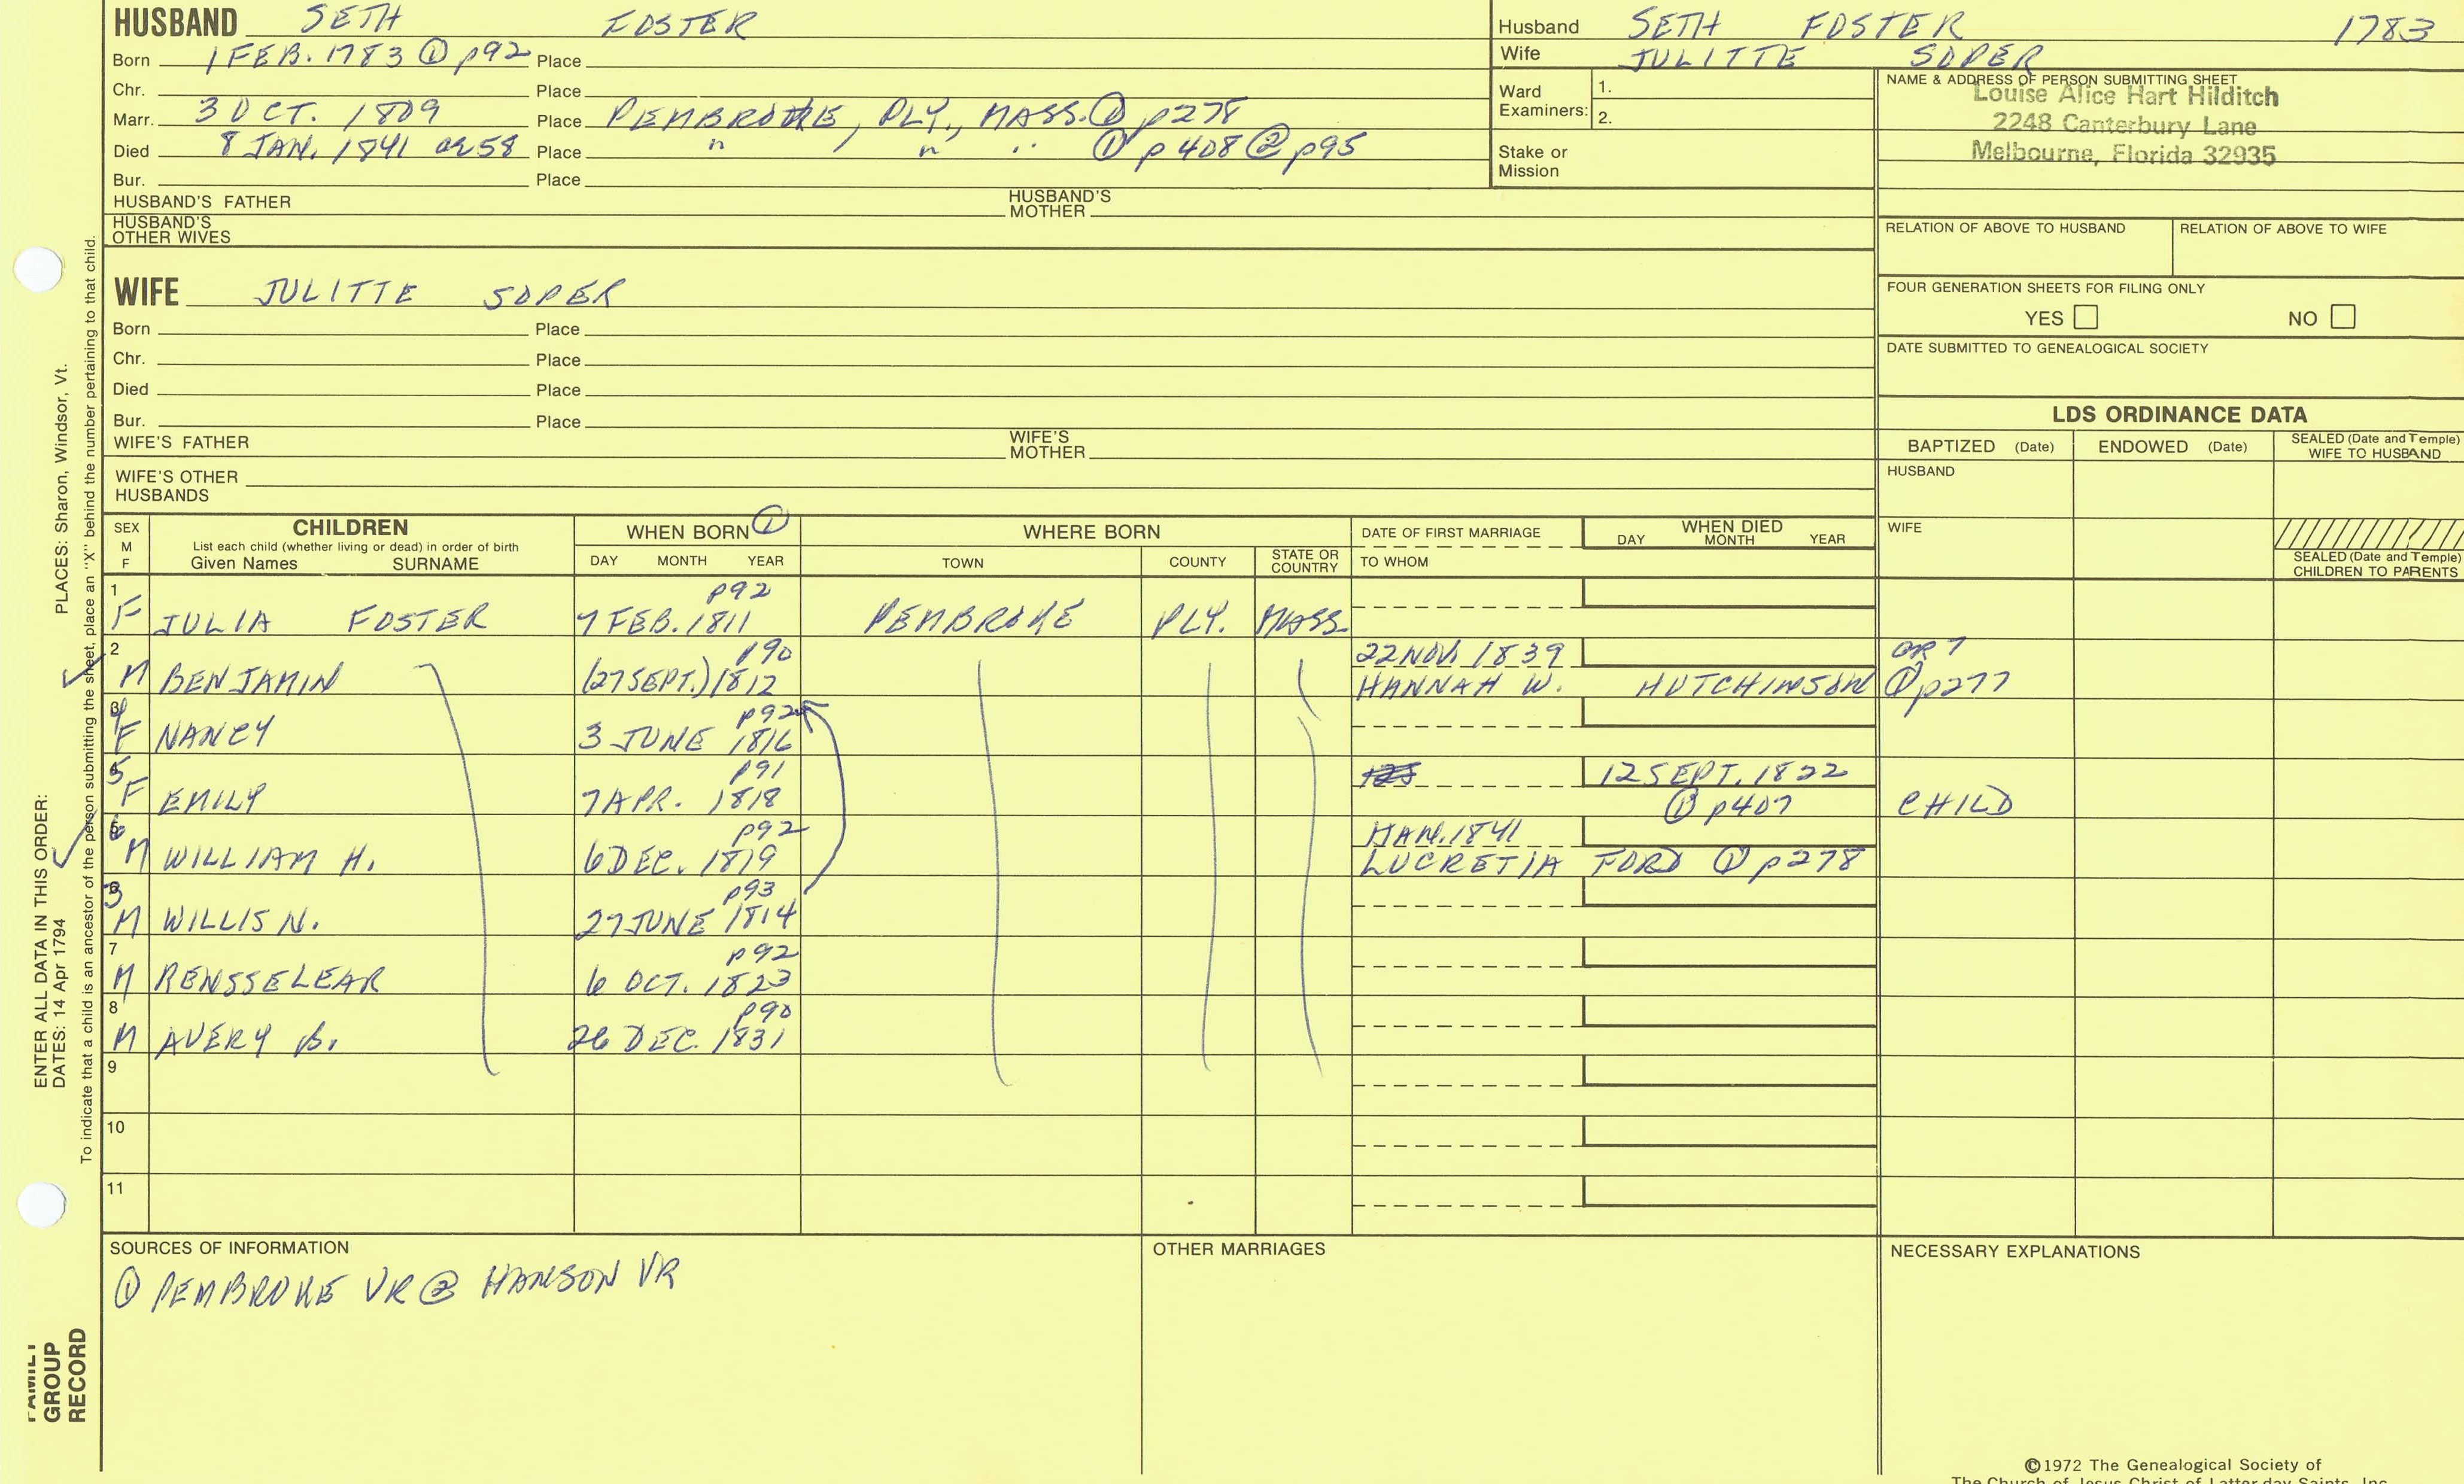 HUSBAND SETH FOSTER
Born 1 FEB. 1783 ① p92 Place
Chr. Place
Marr. 3 OCT. 1809 Place PEMBROKE, PLY., MASS. ① p278
Died 8 JAN. 1841 ae 58 Place " " " ① p408 ② p95
Bur. Place
HUSBAND'S FATHER HUSBAND'S MOTHER
HUSBAND'S OTHER WIVES
Husband SETH FOSTER 1783
Wife JULITTE SOPER
Ward Examiners: 1.
2.
Stake or Mission
NAME & ADDRESS OF PERSON SUBMITTING SHEET
Louise Alice Hart Hilditch
2248 Canterbury Lane
Melbourne, Florida 32935
RELATION OF ABOVE TO HUSBAND RELATION OF ABOVE TO WIFE
FOUR GENERATION SHEETS FOR FILING ONLY
YES NO
DATE SUBMITTED TO GENEALOGICAL SOCIETY
WIFE JULITTE SOPER
Born Place
Chr. Place
Died Place
Bur. Place
WIFE'S FATHER WIFE'S MOTHER
WIFE'S OTHER HUSBANDS
LDS ORDINANCE DATA
BAPTIZED (Date) ENDOWED (Date) SEALED (Date and Temple) WIFE TO HUSBAND
HUSBAND
WIFE
SEALED (Date and Temple) CHILDREN TO PARENTS
SEX M F
CHILDREN
List each child (whether living or dead) in order of birth
Given Names SURNAME
WHEN BORN ①
DAY MONTH YEAR
WHERE BORN
TOWN COUNTY STATE OR COUNTRY
DATE OF FIRST MARRIAGE
TO WHOM
WHEN DIED
DAY MONTH YEAR
1 p92
F JULIA FOSTER 7 FEB. 1811 PEMBROKE PLY. MASS.
2 p90 22 NOV. 1839 OR 7
M BENJAMIN (27 SEPT.) 1812 HANNAH W. HUTCHINSON ① p277
4 p92
F NANCY 3 JUNE 1816
5 p91 12 SEPT. 1822
F EMILY 7 APR. 1818 ① p407 CHILD
6 p92 JAN. 1841
M WILLIAM H. 6 DEC. 1819 LUCRETIA FORD ① p278
3 p93
M WILLIS N. 27 JUNE 1814
7 p92
M RENSSELEAR 6 OCT. 1823
8 p90
M AVERY B. 26 DEC. 1831
9
10
11
SOURCES OF INFORMATION
① PEMBROKE VR ② HANSON VR
OTHER MARRIAGES
NECESSARY EXPLANATIONS
©1972 The Genealogical Society of
The Church of Jesus Christ of Latter-day Saints, Inc.
ENTER ALL DATA IN THIS ORDER:
DATES: 14 Apr 1794 PLACES: Sharon, Windsor, Vt.
To indicate that a child is an ancestor of the person submitting the sheet, place an "X" behind the number pertaining to that child.
FAMILY
GROUP
RECORD